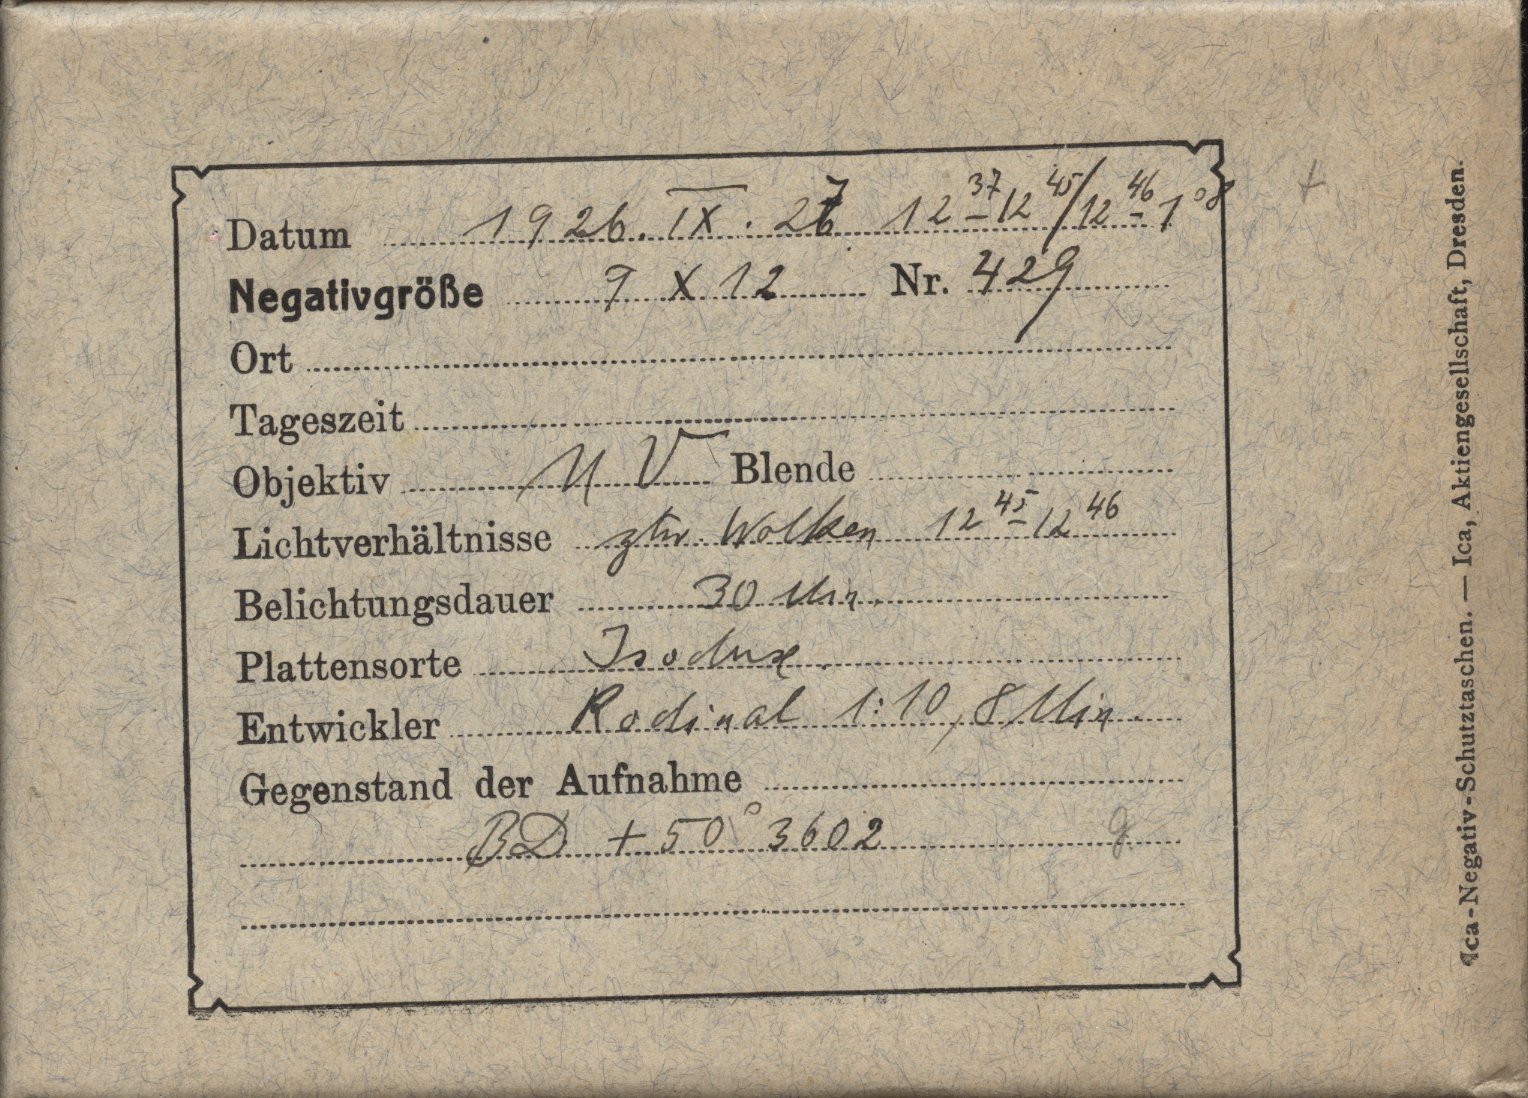 Datum 1926. IX. 27 12 37 - 12 45 / 12 46 - 1 08
Negativgröße 9 X 12 Nr. 429
Ort
Tageszeit
Objektiv UV Blende
Lichtverhältnisse ztw. Wolken 12 45 - 12 46
Belichtungsdauer 30 Min.
Plattensorte Isodux.
Entwickler Rodinal 1:10, 8 Min.
Gegenstand der Aufnahme
BD + 50° 3602 g
Ica-Negativ-Schutztaschen. — Ica, Aktiengesellschaft, Dresden.